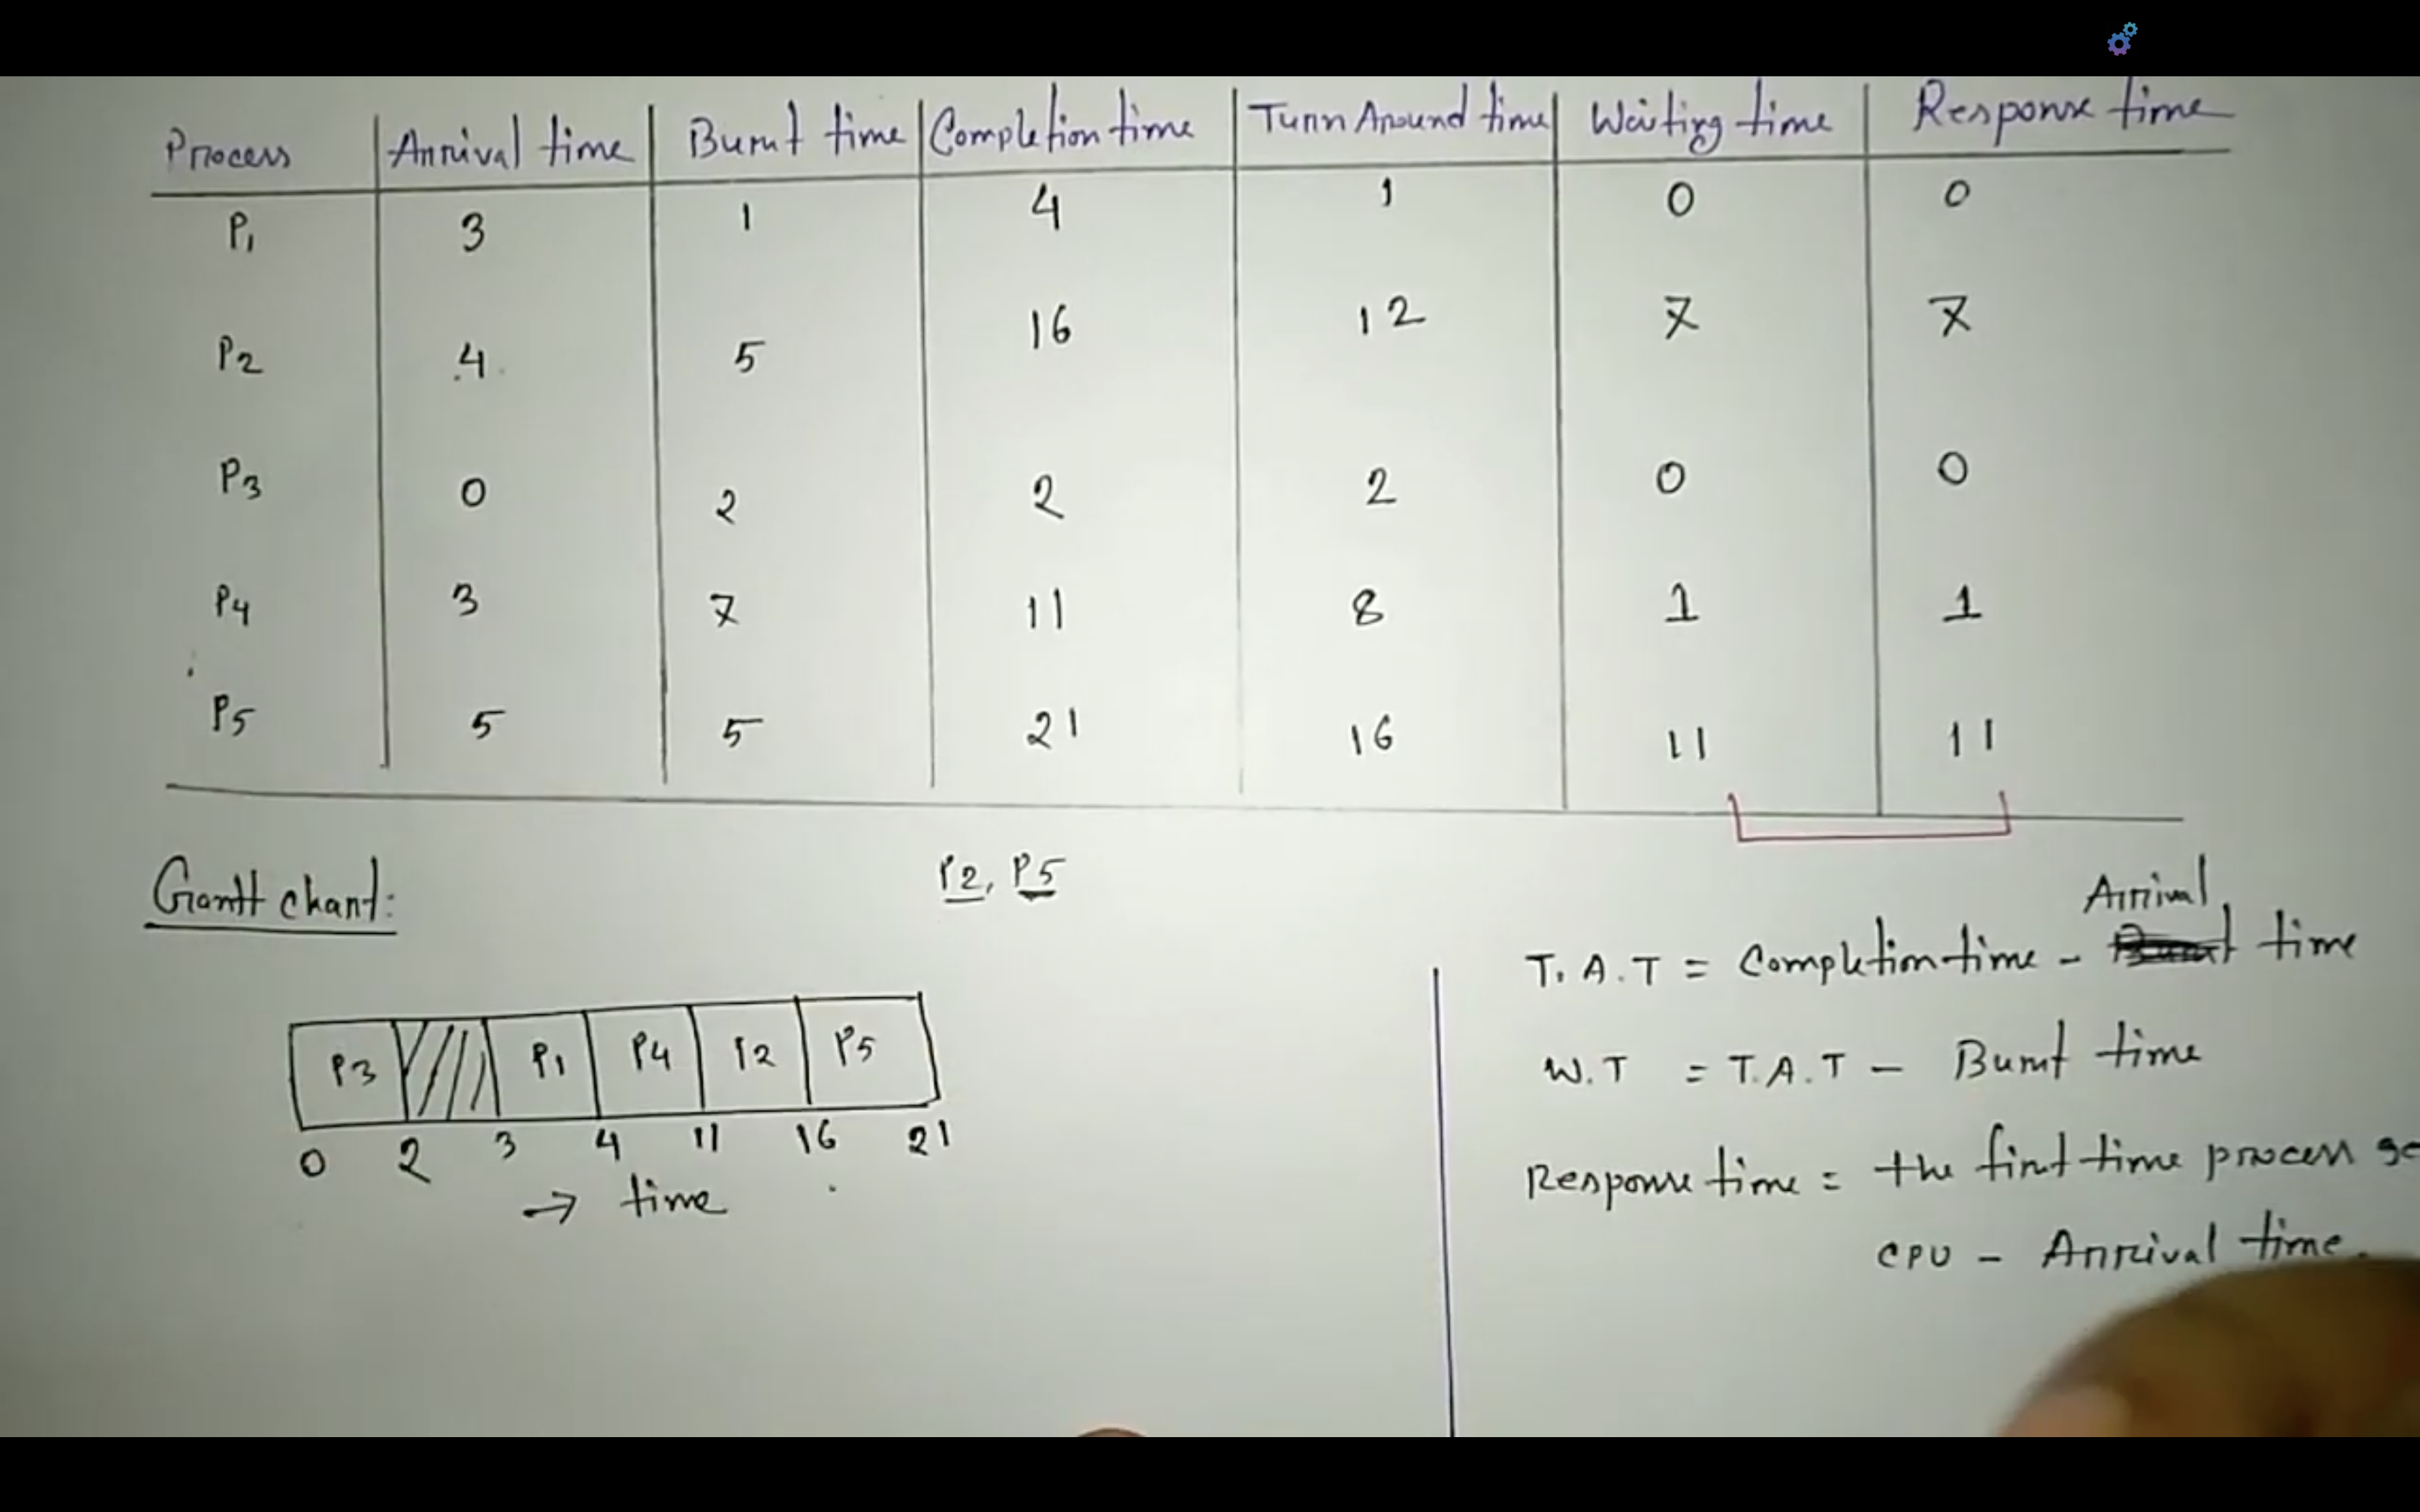 Process Arrival time Burst time Completion time Turn Around time Waiting time Response time
P1 3 1 4 1 0 0
P2 4 5 16 12 7 7
P3 0 2 2 2 0 0
P4 3 7 11 8 1 1
P5 5 5 21 16 11 11
Gantt chart:
P2, P5
P3 P1 P4 P2 P5
0 2 3 4 11 16 21
→ time
Arrival
T.A.T = Completion time - time
W.T = T.A.T - Burst time
Response time = the first time process ge
CPU - Arrival time.